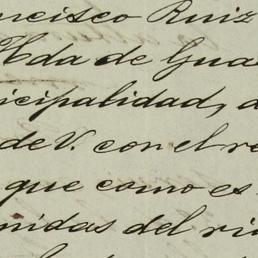 ncisco Ruiz
Hda de Gua
icipalidad, d
de V. con el re
que como es
nidas del ri